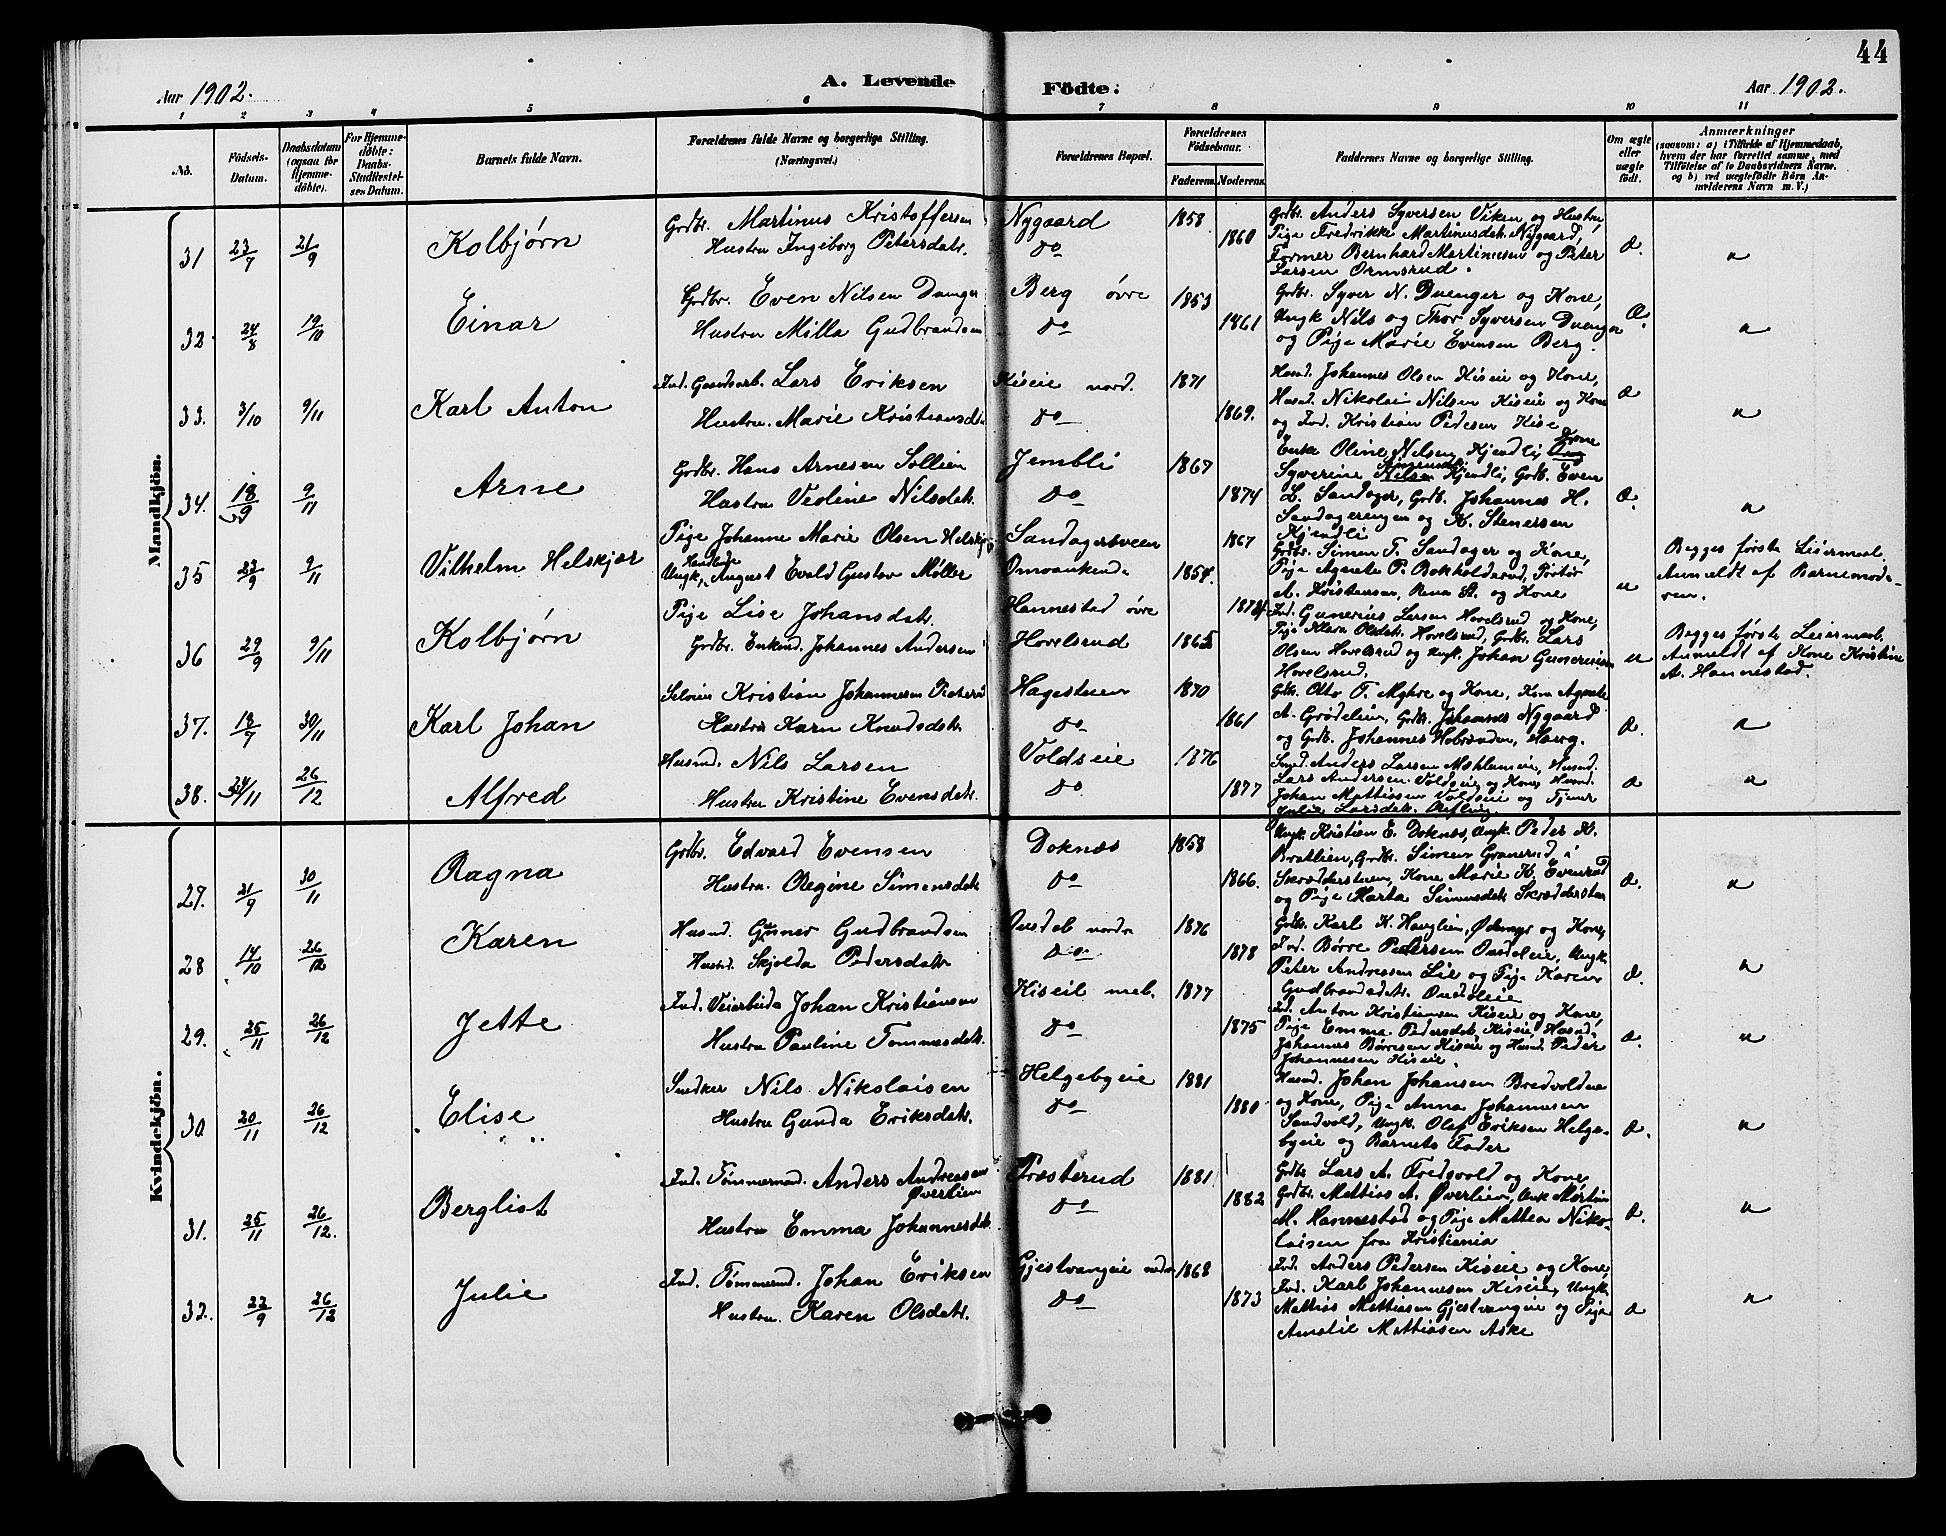 44
Aar 1902.
A. Levende
Födte:
Aar 1902.
1 2 3 4 5 6 7 8 9 10 11
No.
Födsels-
Datum.
Daabsdatum
(ogsaa for
Hjemme-
döbte).
For Hjemme-
döbte:
Daabs-
Stadfæstel-
ses Datum.
Barnets fulde Navn.
Forældrenes fulde Navne og borgerlige Stilling.
(Næringsvei.)
Forældrenes Bopæl.
Forældrenes
Födselsaar.
Faderens. Moderens.
Faddernes Navne og borgerlige Stilling.
Om ægte
eller
uægte
födt.
Anmærkninger
(saasom: a) i Tilfælde af Hjemmedaab,
hvem der har forrettet samme, med
Tilföielse af to Daabsvidners Navne,
og b) ved uægtefödte Börn An-
mælderens Navn m. V.)
Mandkjön.
31 23/7 21/9 Kolbjørn
Grdbr. Martinus Kristoffersen
Hustru Ingeborg Petersdatr.
Nygaard
do
1858
1860
Grdbr. Anders Syversen Viken og Hustru,
Pige Fredrikke Martinusdatr. Nygaard,
Former Bernhard Martinusen og Peter
Larsen Ormsrud.
32. 24/8 19/10 Einar
Grdbr. Even Nilsen
Hustru Milla Gudbrandsen
Berg øvre
do
1853
1861
Grdbr. Syver N. Duenger og Kone,
Ungk Nils og Thor Syversen Duenger
og Pige Marie Evensen Berg.
33. 3/10 9/11 Karl Anton
Ind. Gaardsarb. Lars Eriksen
Hustru. Marie Kristiansdtr
Kiseie nord.
do
1871
1869.
Husmd. Johannes Olsen Kiseie og Kone,
Husmd. Nikolai Nilsen Kiseie og Kone
og Ind. Kristian Pedersen Kise
34. 18/9 9/11 Arne
Grdbr. Hans Arnesen Sollien
Hustru Veoline Nilsdatr.
Jembli
do
1867
1874
Enke Oline Nilsen Kjendli, Kone
Syverine Kjendli, Grdb. Even
L. Sandager, Grdb. Johannes H.
Sandagerengen og K. Stenersen
Kjendli
35 23/9 9/11 Vilhelm Helskjær
Pige Johanne Marie Olsen Helskjær
Ungk. August Evald Gustav Møller
Sandagersveen
Omvankende
1867
1854.
Grdbr. Simen T. Sandager og Kone,
Pige Agnete P. Bokholderud, Portør
A. Kristensen, Rena St. og Kone
u
Begges første Leiermaal.
Anmeldt af Barnemode-
ren.
36 29/9 9/11 Kolbjørn
Pige Lise Johansdatr.
Grdbr. Enkemd. Johannes Andersen
Hannestad øvre
Hovelsrud
1874
1865
Ind. Gunerius Larsen Hovelsrud og Kone,
Pige Klara Olsdatr. Hovelsrud, Grdbr. Lars
Olsen Hovelsrud og Ungk. Johan Guneriusen
Hovelsrud.
u
Begges første Leiermaal.
Anmeldt af Kone Kristine
A. Hannestad.
37. 18/7 30/11 Karl Johan
Selveier Kristian Johannesen
Hustru Karen Knudsdatr.
Hagestuen
do
1870
1861
Grdbr. Otto T. Myhre og Kone, Kone Agnete
A. Grødelien, Grdb. Johannes Nygaard
og Grdb. Johannes
38. 24/11 26/12 Alfred
Husmd. Nils Larsen
Hustru Kristine Evensdatr.
Voldseie
do
1876
1877
Smed. Anders Larsen Mæhlumeie, Husmd.
Lars Andersen Voldseie og Kone, Husmd.
Johan Mattiasen Voldseie og Tjener
Julie Larsdatr.
Kvindekjön.
27. 21/9 30/11 Ragna
Grdbr. Edvard Evensen
Hustru. Regine Simensdatr
Doknæs
do
1858
1866.
Ungk. Kristian E. Doknæs, Ungk. Peder K.
Bratlien, Grdbr. Simen Granerud i
Skrædderstuen, Kone Marie K. Evenrud
og Pige Marta Simensdatr. Skrædderstuen
28 14/10 26/12 Karen
Husmd. Gunner Gudbrandsen
Hustru. Skjolda Pedersdatr
Ousdal nordre
do
1876
1878
Grdbr. Karl K. Hauglien, Ødemyr og Kone,
Ind. Børre Pedersen Ousdaleie, Ungk.
Peter Andreassen Lie og Pige Karen
Gudbrandsdatr. Ousdaleie
29. 25/11 26/12 Jette
Ind. Veiarbeider Johan Kristiansen
Hustru Pauline Tommesdatr.
Kiseie mel.
do
1877
1875
Ind. Anton Kristiansen Kiseie og Kone,
Pige Emma Pedersdatr. Kiseie, Husmd.
Johannes Børresen Kiseie og Husmd. Peder
Johannesen Kiseie
30. 20/11 26/12 Elise
Snedker Nils Nikolaisen
Hustru Gunda Eriksdatr.
Helgebyeie
do
1881
1880
Husmd. Johan Johansen Bredvolden
og Kone, Pige Anna Johannesen
Sandvold, Ungk. Olaf Eriksen Helge-
byeie og Barnets Fader
31. 25/11 26/12. Berglist
Ind. Tømmermd. Anders Andreasen
Øverlien
Hustru Emma Johannesdatr.
Præsterud
do
1881
1882
Grdbr Lars A. Fredsvold og Kone
Grdbr. Mattias A. Øverlien, Ungk Martin
M. Hannestad og Pige Mattea Niko-
laisen fra Kristiania
32. 22/9 26/12 Julie
Ind. Tømmermd. Johan Eriksen
Hustru Karen Olsdatr.
Gjestvangeie nedre
do
1868
1873
Ind. Anders Pedersen Kiseie og Kone,
Ind. Karl Johannesen Kiseie, Ungk.
Mattias Mattiasen Gjestvangeie og Pige
Amalie Mattiasen Aske